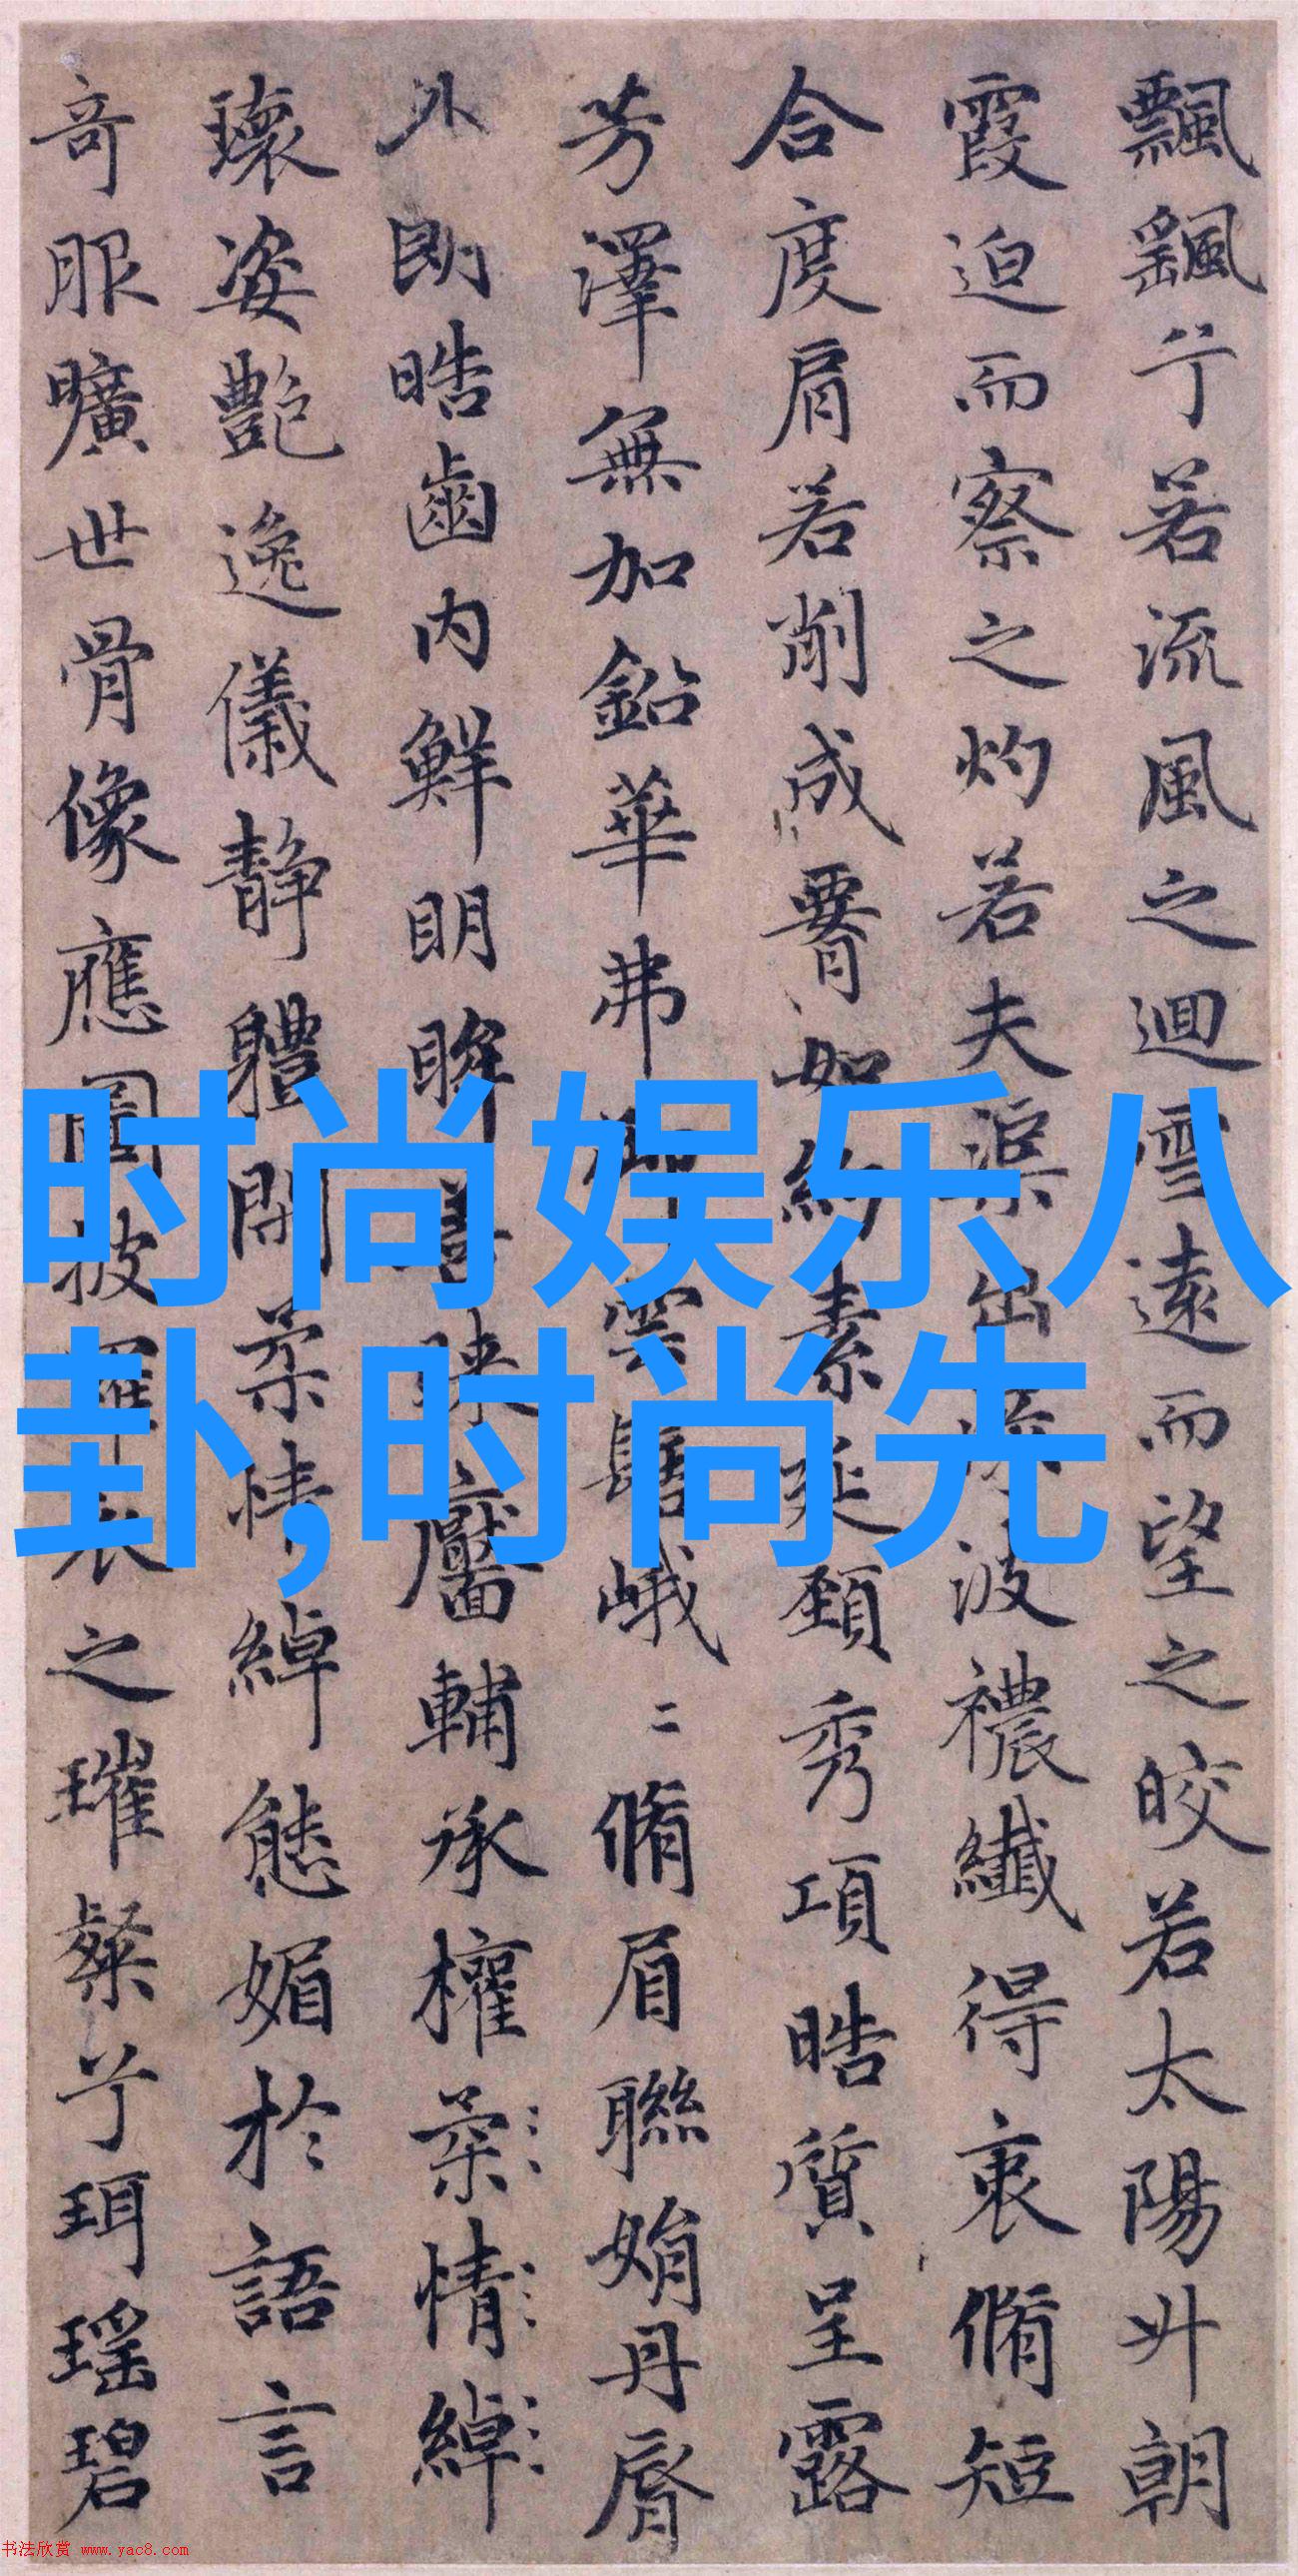 飄飖兮若流風之迴雪遠而望之皎若太陽升朝
霞迫而察之灼若夫淥出淥波襛纖得衷脩短
合度肩若削成要如約素延頸秀項皓質呈露
芳澤無加鉛華弗御雲髻峨二脩眉聯娟丹脣
外朗皓齒内鮮明眸善睞靨輔承權柔情綽
瓌姿艷逸儀静體閑柔情綽態媚於語言
奇服曠世骨像應圖披羅衣之璀粲兮珥瑶碧
时尚娱乐八
卦,时尚先
书法欣赏 www.yac8.com